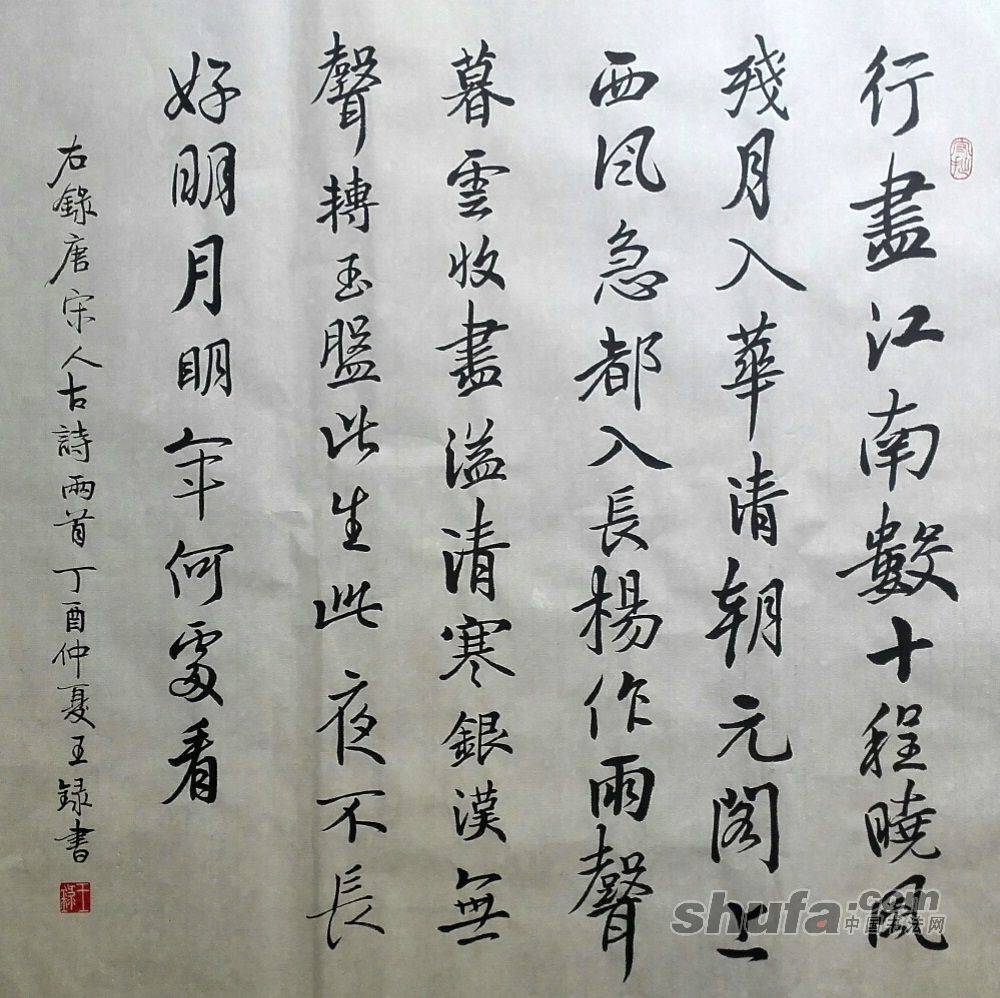 行盡江南數十程曉風
殘月入華清朝元閣上
西風急都入長楊作雨聲
暮雲收盡溢清寒銀漢無
聲轉玉盤此生此夜不長
好明月明年何處看
右錄唐宋人古詩兩首丁酉仲夏王録書
王録
shufa.com
中国书法网